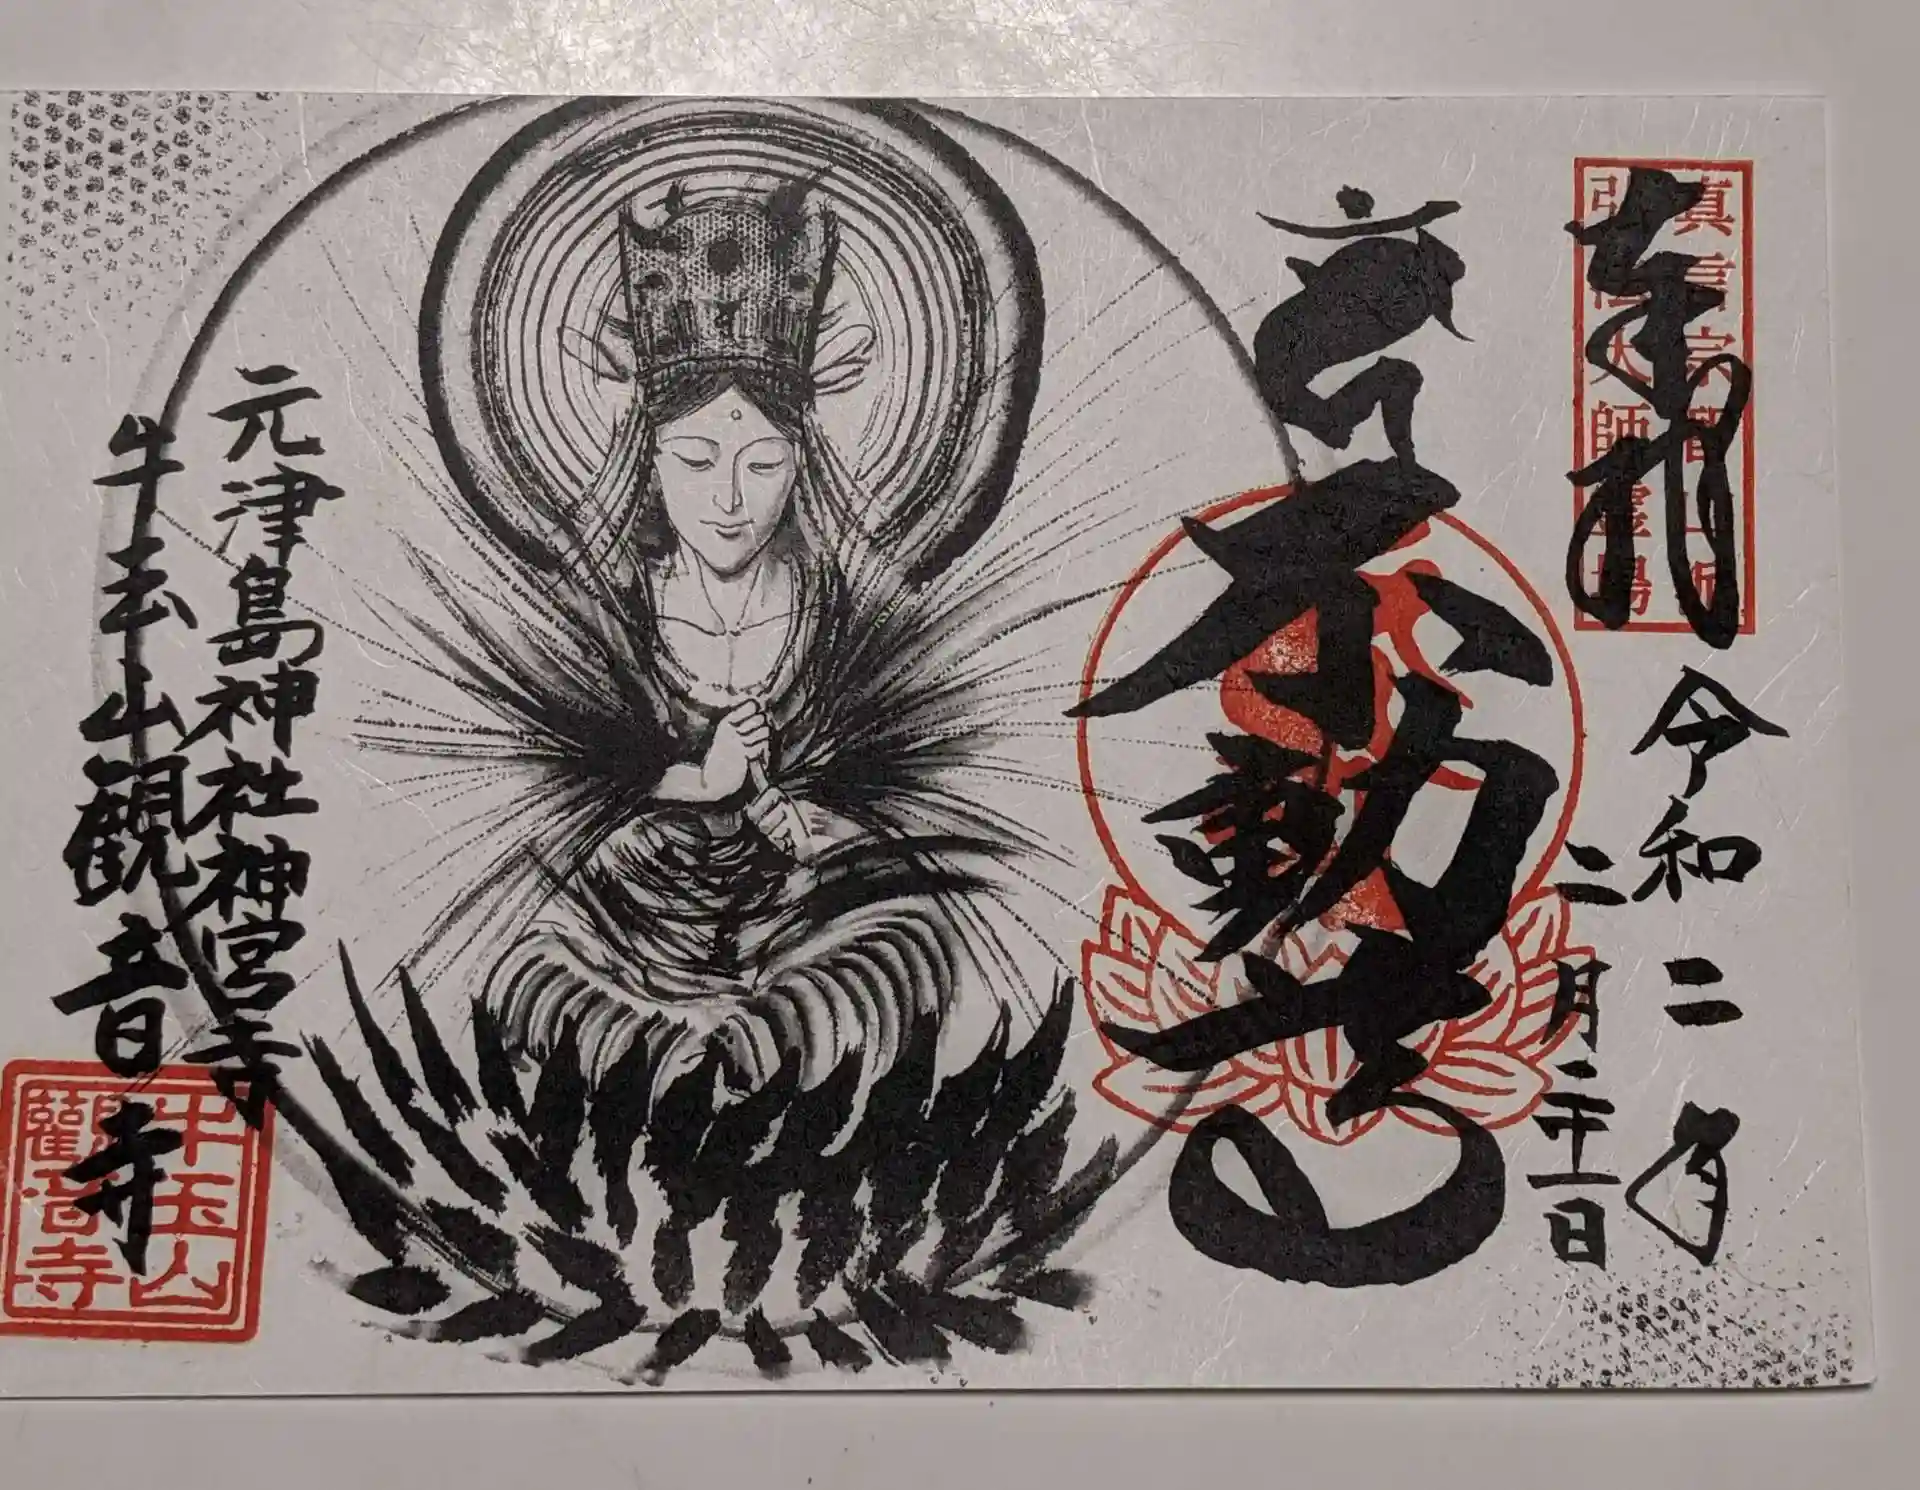 奉拝
真言宗智山派
弘法大師霊場
令和二年
二月二十二日
高不動尊
元津島神社神宮寺
牛玉山観音寺
牛玉山
観音寺